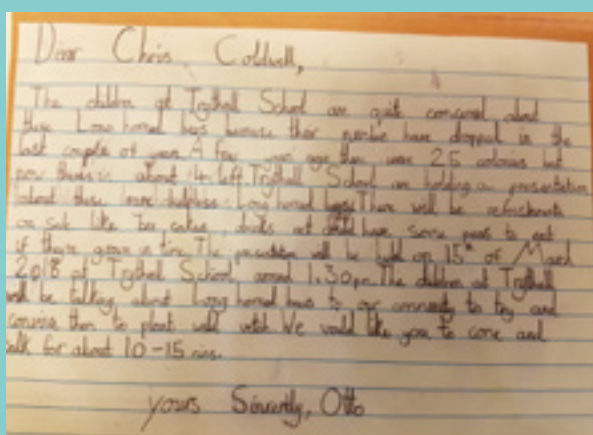 Dear Chris Coldwell,
The children at Trythall School are quite concerned about
these Long horned bees because their number have dropped in the
last couple of years A few years ago there were 25 colonies but
now there is about left. Trythall School are holding a presentation
about these Long horned bees. There will be refreshments
on sale like Tea cakes drinks ect have some peas to eat
if there grown in time. The presentation will be held on 15th of March
2018 at Trythall School, around 1.30pm. The children at Trythall
will be talking about Long horned bees to our community to try and
convince them to plant wild vetch. We would like you to come and
talk for about 10-15 mins.
yours Sincerely, Otto